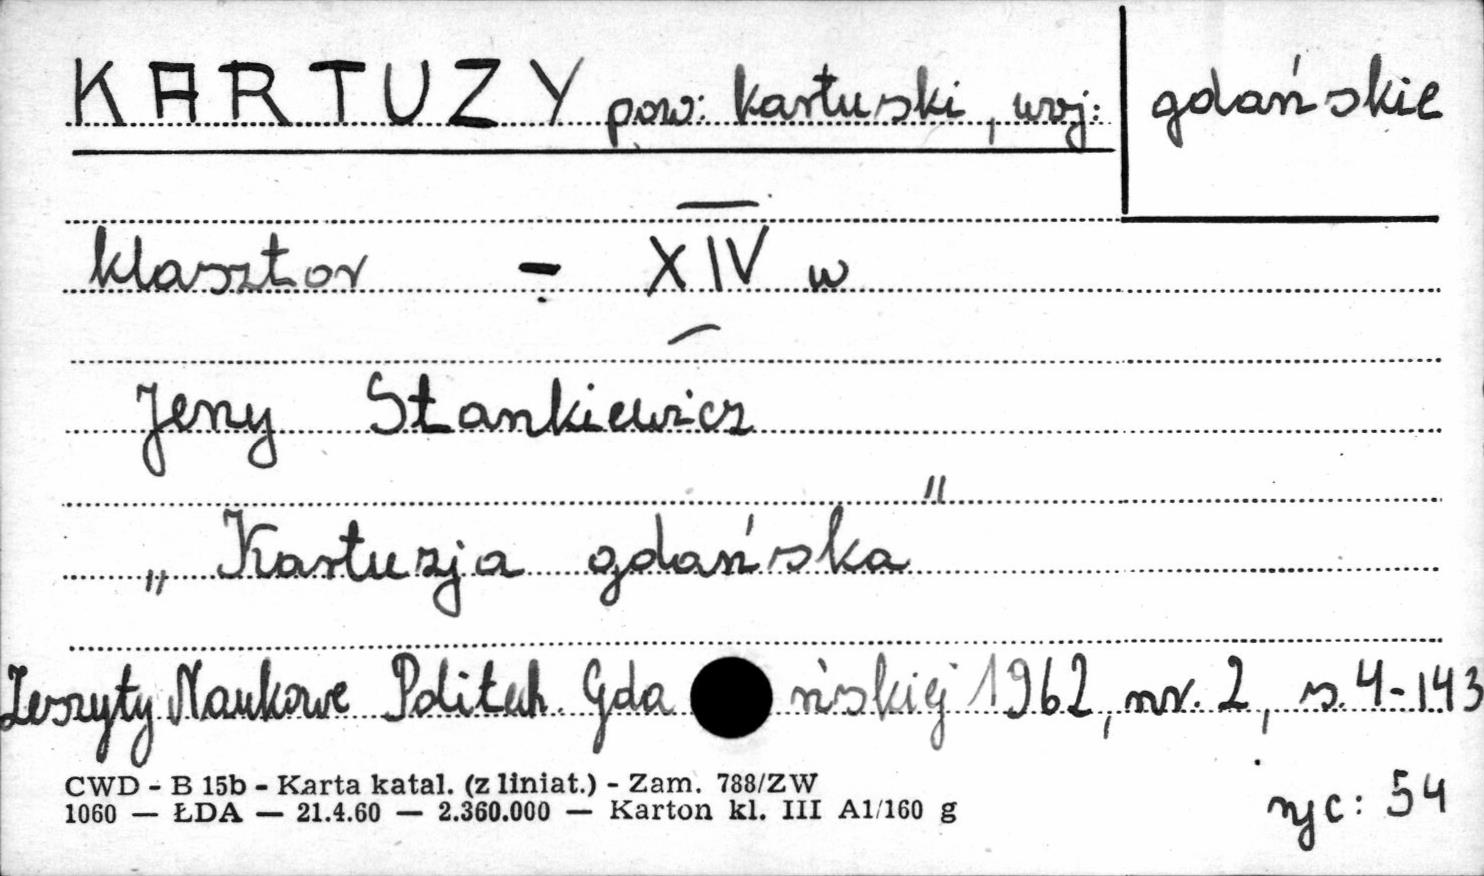 KARTUZY pow: kartuski, woj: gdańskie
klasztor - XIV w
Jerzy Stankiewicz
„Kartuzja gdańska"
Zeszyty Naukowe Politech. Gdańskiej 1962, nr. 2, s. 4-143
CWD - B 15b - Karta katal. (z liniat.) - Zam. 788/ZW
1060 — ŁDA — 21.4.60 — 2.360.000 — Karton kl. III A1/160 g
ryc: 54